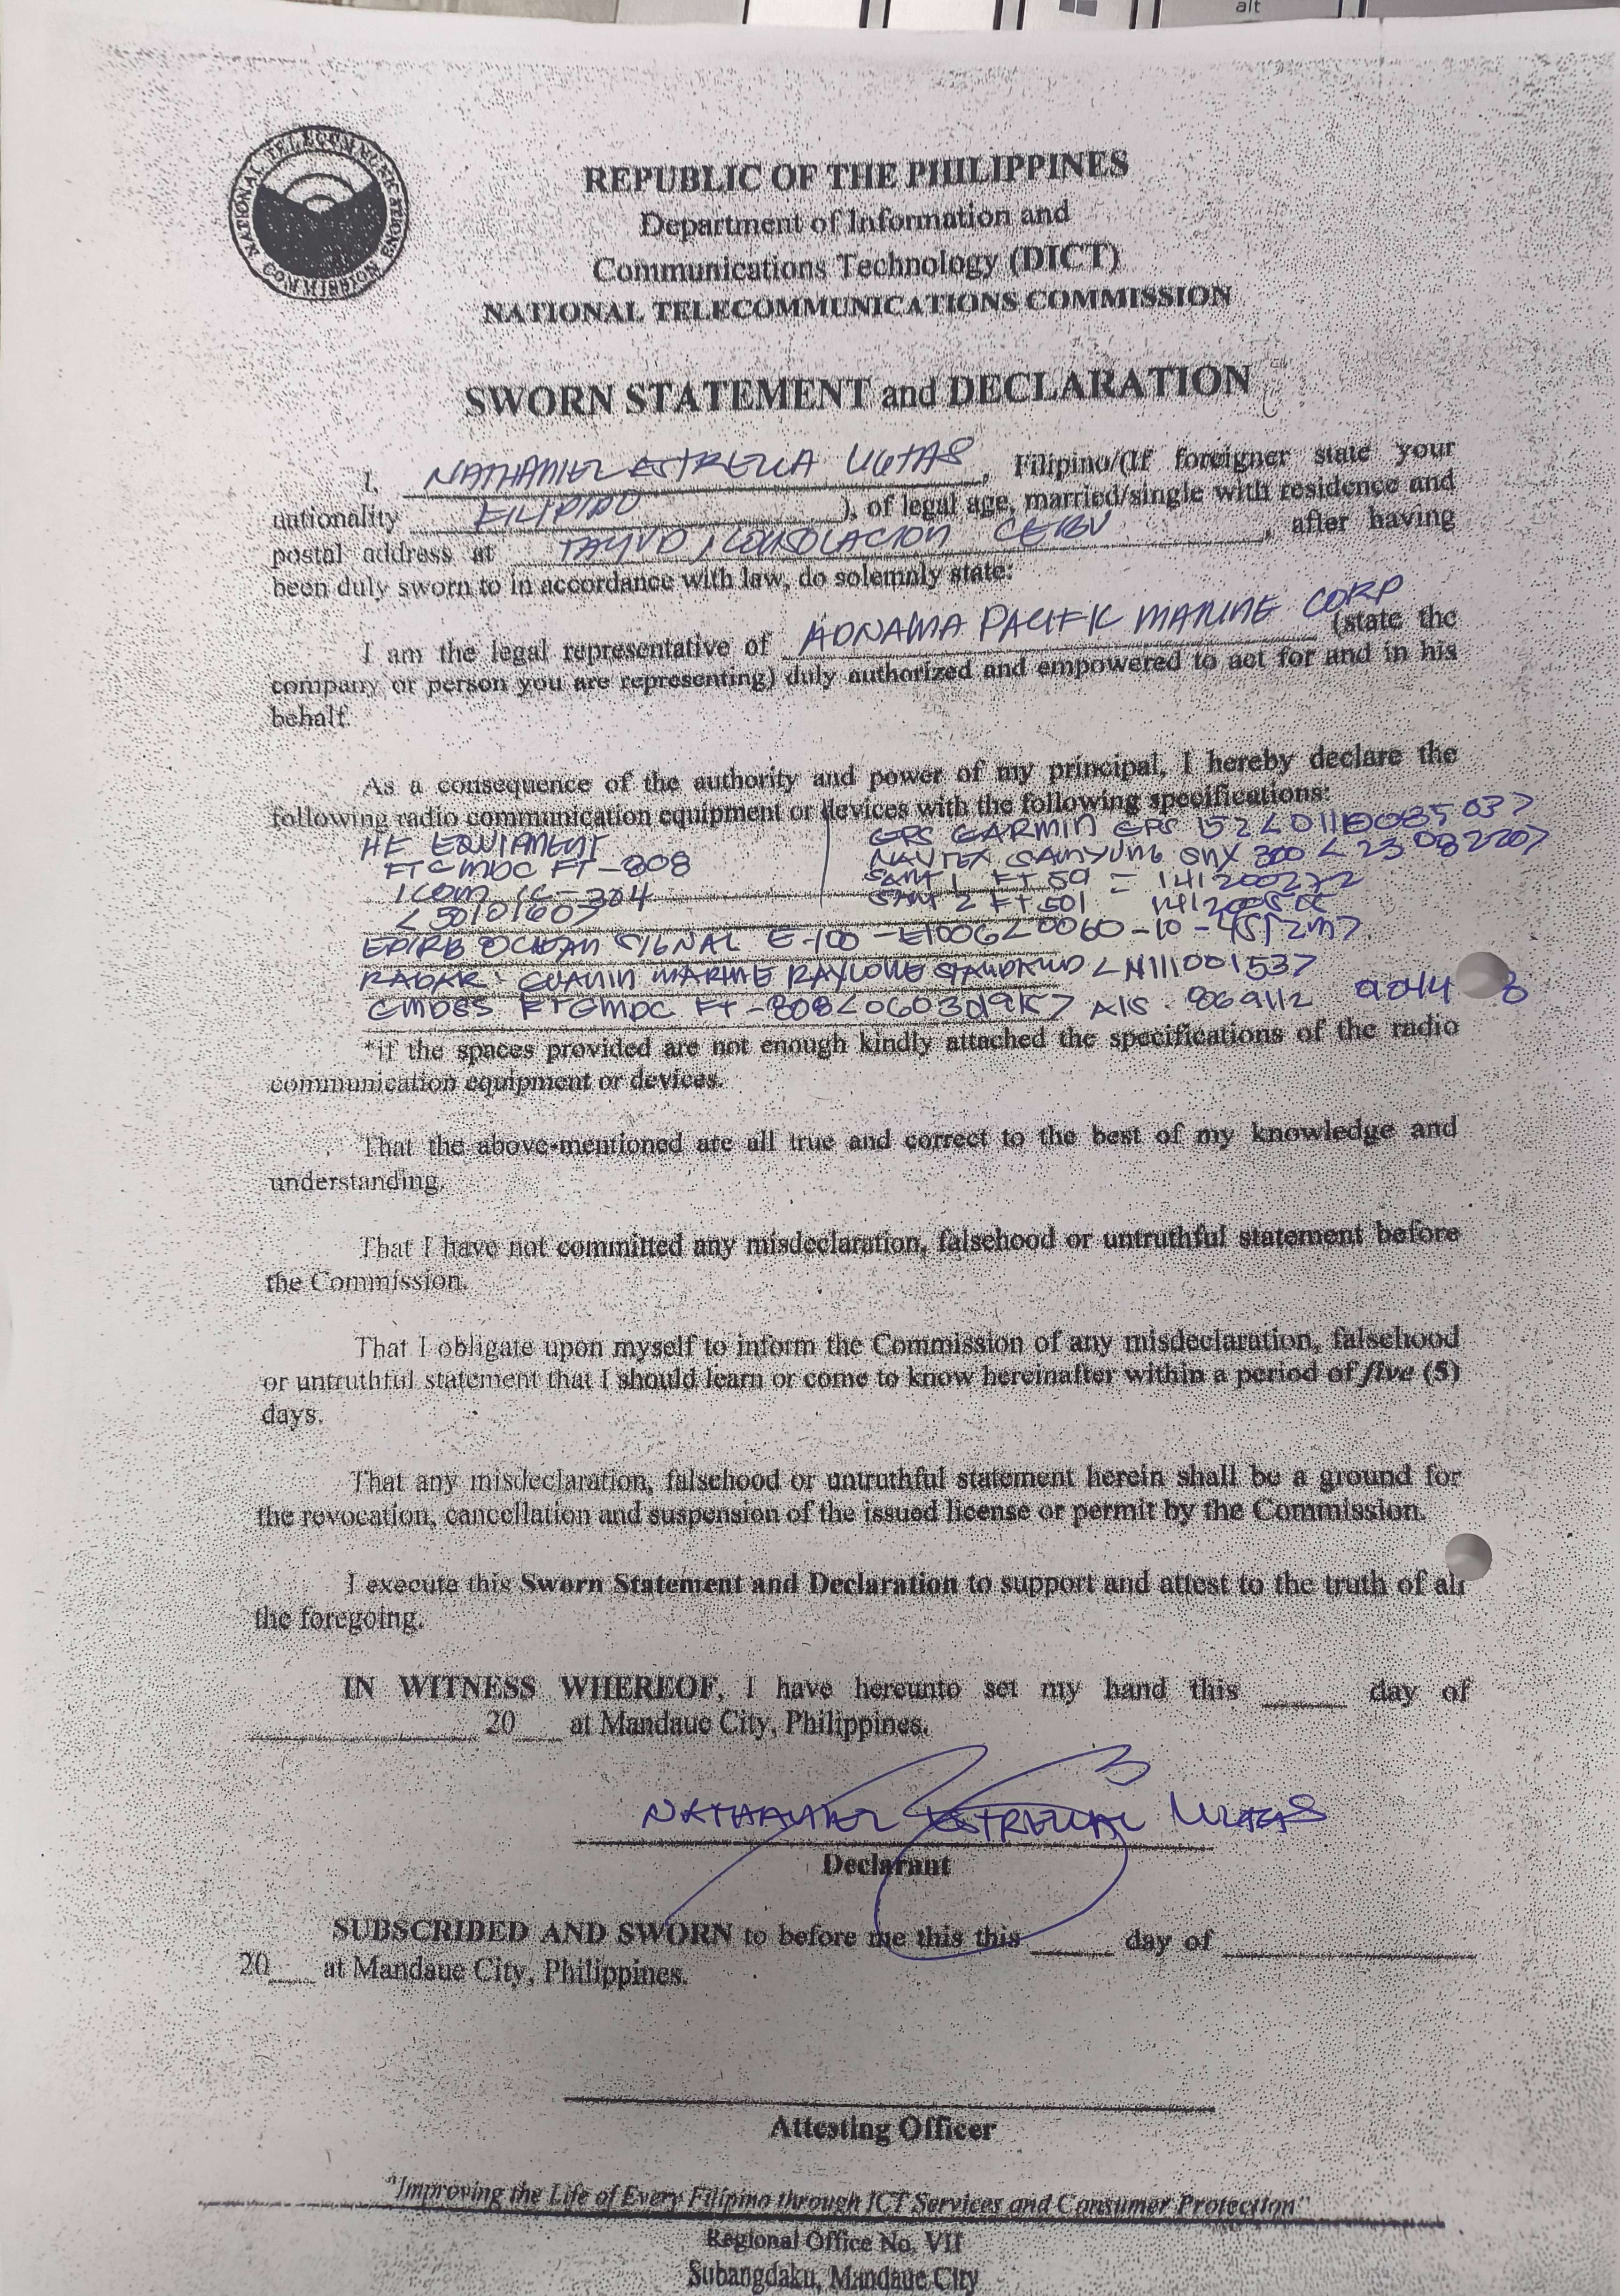 alt
NATIONAL TELECOMMUNICATIONS COMMISSION
REPUBLIC OF THE PHILIPPINES
Department of Information and
Communications Technology (DICT)
NATIONAL TELECOMMUNICATIONS COMMISSION
SWORN STATEMENT and DECLARATION
I, NATHANIEL ESTRELLA, Filipino/(If foreigner state your
nationality FILIPINO), of legal age, married/single with residence and
postal address at TAYUD, CONSOLACION CEBU, after having
been duly sworn to in accordance with law, do solemnly state:
I am the legal representative of ADNAMA PACIFIC MARINE CORP (state the
company or person you are representing) duly authorized and empowered to act for and in his
behalf.
As a consequence of the authority and power of my principal, I hereby declare the
following radio communication equipment or devices with the following specifications:
HF EQUIPMENT
FT-808
ICOM IC-304
<5010160>
GPS GARMIN GPS 152
NAVTEX SAMYUNG SNX 300 <23082207>
SART 1 FT 59 = 141200272
SART 2 FT 501
EPIRB OCEAN SIGNAL E-100
RADAR: MARINE RAYLONE STANDARD <N111001537
GMDSS FT-808 AIS 869112
*if the spaces provided are not enough kindly attached the specifications of the radio
communication equipment or devices.
That the above-mentioned are all true and correct to the best of my knowledge and
understanding.
That I have not committed any misdeclaration, falsehood or untruthful statement before
the Commission.
That I obligate upon myself to inform the Commission of any misdeclaration, falsehood
or untruthful statement that I should learn or come to know hereinafter within a period of five (5)
days.
That any misdeclaration, falsehood or untruthful statement herein shall be a ground for
the revocation, cancellation and suspension of the issued license or permit by the Commission.
I execute this Sworn Statement and Declaration to support and attest to the truth of all
the foregoing.
IN WITNESS WHEREOF, I have hereunto set my hand this _____ day of
_______________ 20___ at Mandaue City, Philippines.
NATHANIEL
Declarant
SUBSCRIBED AND SWORN to before me this this _____ day of _______________
20___ at Mandaue City, Philippines.
Attesting Officer
"Improving the Life of Every Filipino through ICT Services and Consumer Protection"
Regional Office No. VII
Subangdaku, Mandaue City